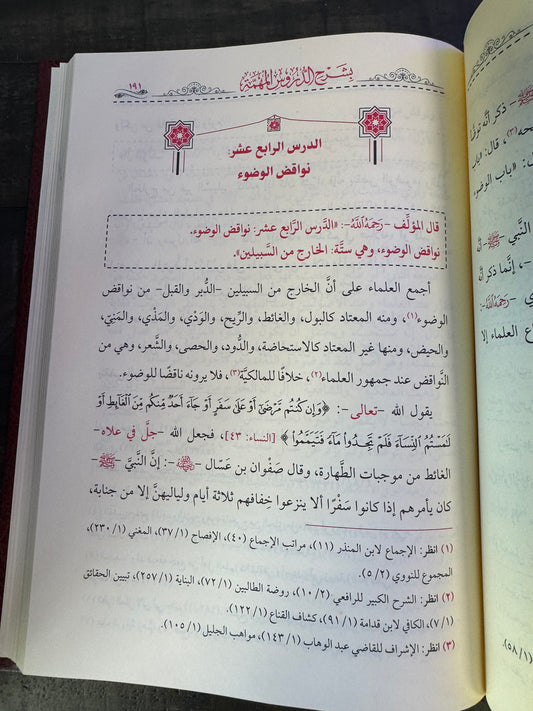 بشرح الدروس المهمة
١٩١
الدرس الرابع عشر:
نواقض الوضوء
قال المؤلِّف -رَحِمَهُ اللَّهُ-: «الدَّرس الرَّابع عشر: نواقض الوضوء.
نواقض الوضوء، وهي ستَّة: الخارج من السَّبيلين».
أجمع العلماء على أنَّ الخارج من السبيلين -الدُّبر والقبل- من نواقض
الوضوء(١)، ومنه المعتاد كالبول، والغائط، والرِّيح، والوَدْي، والمَذْي، والمَنِيّ،
والحيض، ومنها غير المعتاد كالاستحاضة، والدُّود، والحصى، والشَّعر، وهي من
النَّواقض عند جمهور العلماء(٢)، خلافًا للمالكيَّة(٣)، فلا يرونه ناقضًا للوضوء.
يقول الله -تعالى-: ﴿وَإِن كُنتُم مَّرْضَىٰٓ أَوْ عَلَىٰ سَفَرٍ أَوْ جَآءَ أَحَدٌ مِّنكُم مِّنَ ٱلْغَآئِطِ أَوْ
لَٰمَسْتُمُ ٱلنِّسَآءَ فَلَمْ تَجِدُوا۟ مَآءً فَتَيَمَّمُوا۟﴾ [النساء: ٤٣]، فجعل الله -جلَّ في علاه-
الغائط من موجبات الطَّهارة، وقال صَفْوان بن عَسَّال -رضي الله عنه-: إنَّ النَّبيَّ -ﷺ-
كان يأمرهم إذا كانوا سَفْرًا ألا ينزعوا خِفافهم ثلاثة أيام ولياليهنَّ إلا من جنابة،
(١) انظر: الإجماع لابن المنذر (١١)، مراتب الإجماع (٤٠)، الإفصاح (٣٧/١)، المغني (٢٣٠/١)،
المجموع للنووي (٥/٢).
(٢) انظر: الشرح الكبير للرافعي (١٠/٢)، روضة الطالبين (٧٢/١)، البناية (٢٥٧/١)، تبيين الحقائق
(٧/١)، الكافي لابن قدامة (٩١/١)، كشاف القناع (١٢٢/١).
(٣) انظر: الإشراف للقاضي عبد الوهاب (١٤٣/١)، مواهب الجليل (١٠٥/١).
ﷺ- ذكر أنَّه توضأ
(٣)، قال: «باب
«باب الوضوء
النَّبي -ﷺ- أنَّه
-، إنَّما ذكر أنَّ
-رَحِمَهُ اللَّهُ-:
العلماء إلا
(٥٨/١).